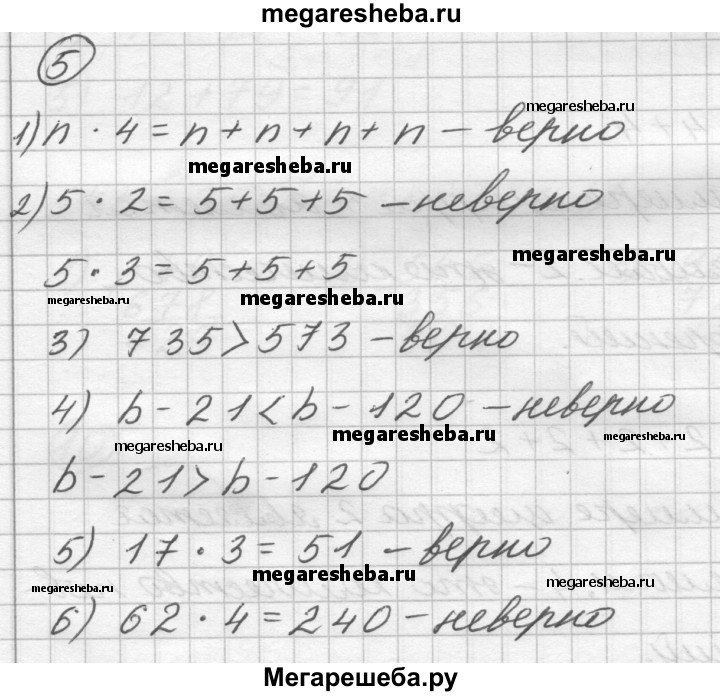 megaresheba.ru
5
megaresheba.ru
1) n · 4 = n + n + n + n – верно
megaresheba.ru
2) 5 · 2 = 5 + 5 + 5 – неверно
megaresheba.ru
5 · 3 = 5 + 5 + 5
megaresheba.ru
megaresheba.ru
3) 735 > 573 – верно
4) b – 21 < b – 120 – неверно
megaresheba.ru
megaresheba.ru
megaresheba.ru
b – 21 > b – 120
5) 17 · 3 = 51 – верно
megaresheba.ru
megaresheba.ru
megaresheba.ru
6) 62 · 4 = 240 – неверно
Мегарешеба.ру